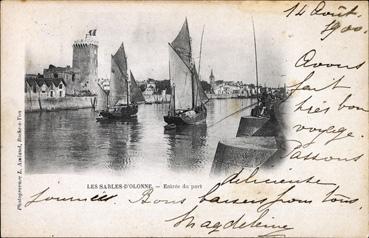 14 Août,
1900
Avons
fait
très bon
voyage.
Passons
délicieuse
journée. Bons baisers pour tous.
Magdeleine
LES SABLES-D'OLONNE. – Entrée du port
Photogravure L. Amiaud, Roche-s-Yon